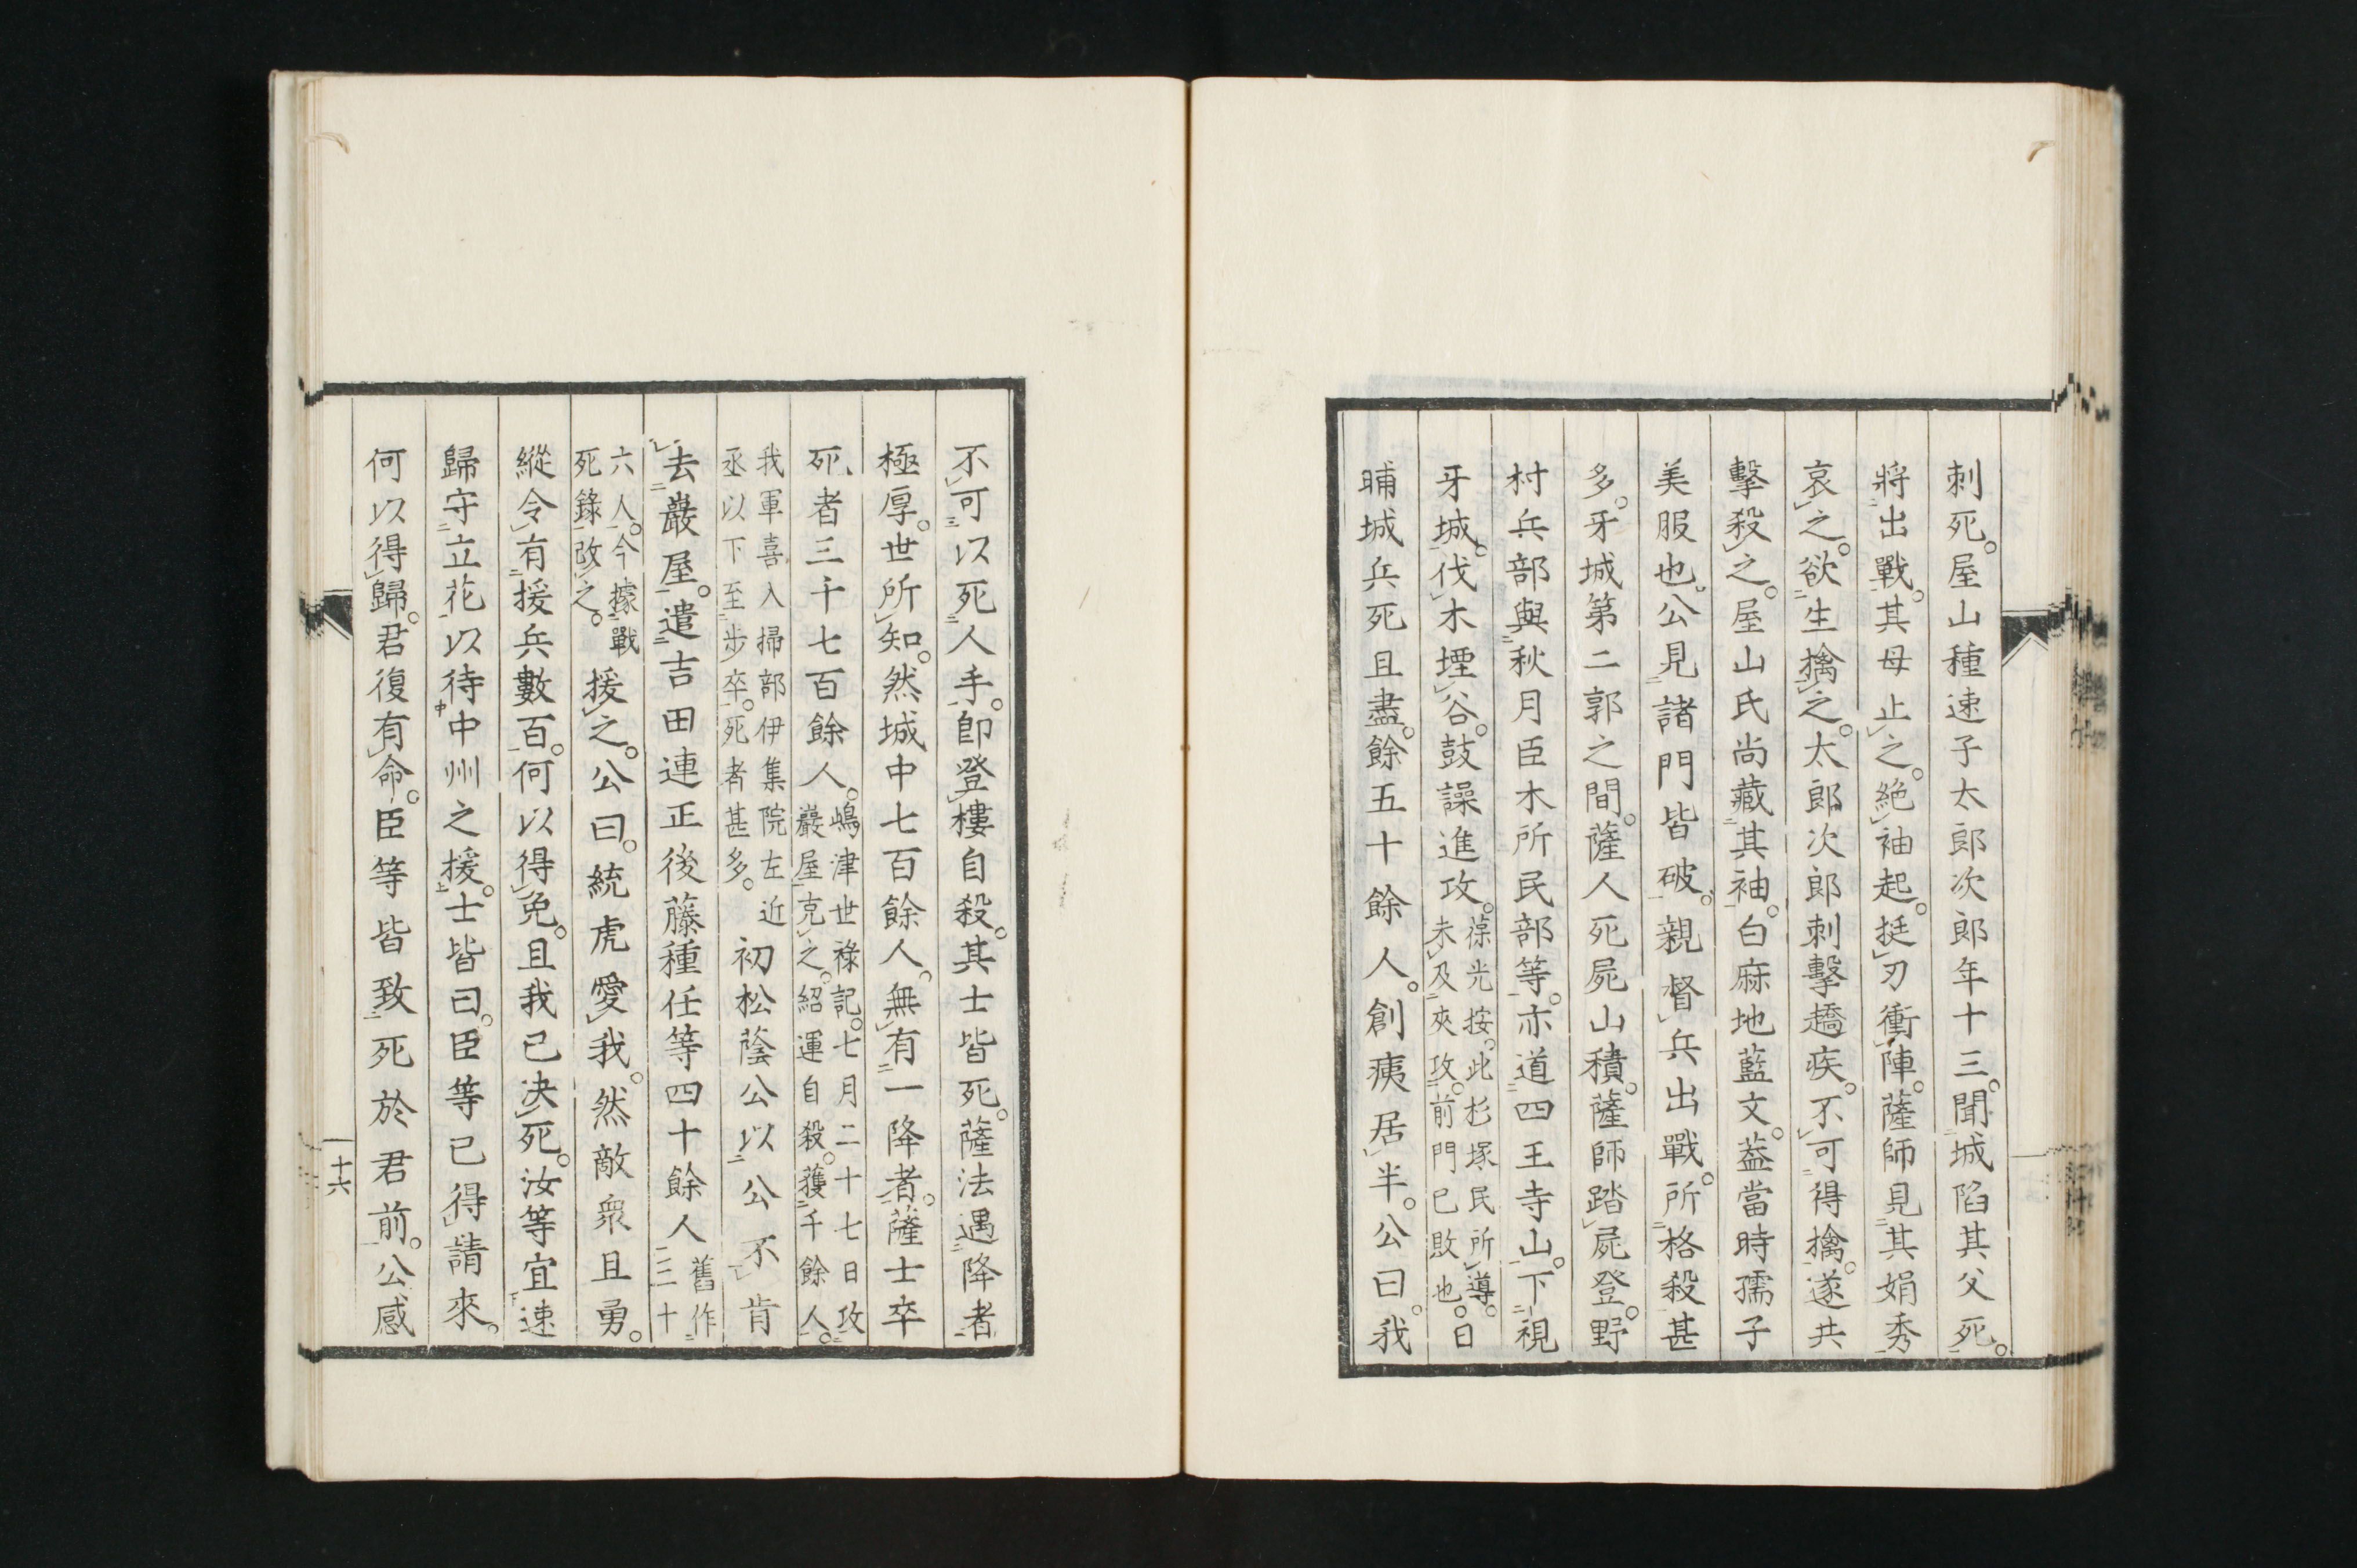 刺死。屋山種速子太郎次郎年十三。聞城陷其父死。
將出戰。其母止之。絶袖起。挺刃衝陣。薩師見其娟秀
哀之。欲生擒之。太郎次郎刺擊趫疾。不可得擒。遂共
擊殺之。屋山氏尚藏其袖。白麻地藍文。葢當時孺子
美服也。公見諸門皆破。親督兵出戰。所格殺甚
多。牙城第二郭之間。薩人死屍山積。薩師踏屍登。野
村兵部與秋月臣木所民部等。亦道四王寺山。下視
牙城。伐木堙谷。鼓譟進攻。葆光按。此杉塚民所導。未及夾攻。前門已敗也。日
晡城兵死且盡。餘五十餘人。創痍居半。公曰。我
不可以死人手。卽登樓自殺。其士皆死。薩法遇降者
極厚。世所知。然城中七百餘人。無有一降者。薩士卒
死者三千七百餘人。嶋津世祿記。七月二十七日攻巖屋克之。紹運自殺。獲千餘人。
我軍喜入掃部伊集院左近丞以下至步卒。死者甚多。初松蔭公以公不肯
去巖屋。遣吉田連正後藤種任等四十餘人舊作二十
六人。今據戰死錄改之。援之。公曰。統虎愛我。然敵衆且勇。
縱令有援兵數百。何以得免。且我已決死。汝等宜速
歸守立花以待中州之援。士皆曰。臣等已得請來。
何以得歸。君復有命。臣等皆致死於君前。公感
十六